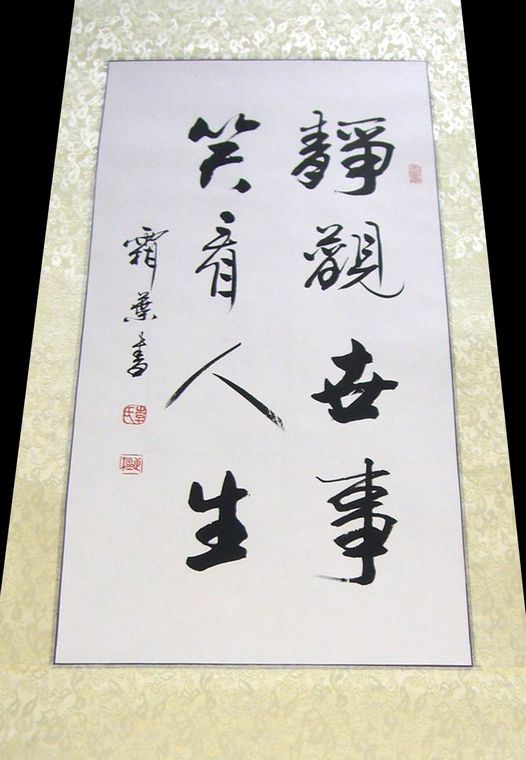 靜觀世事
笑看人生
霜葉書